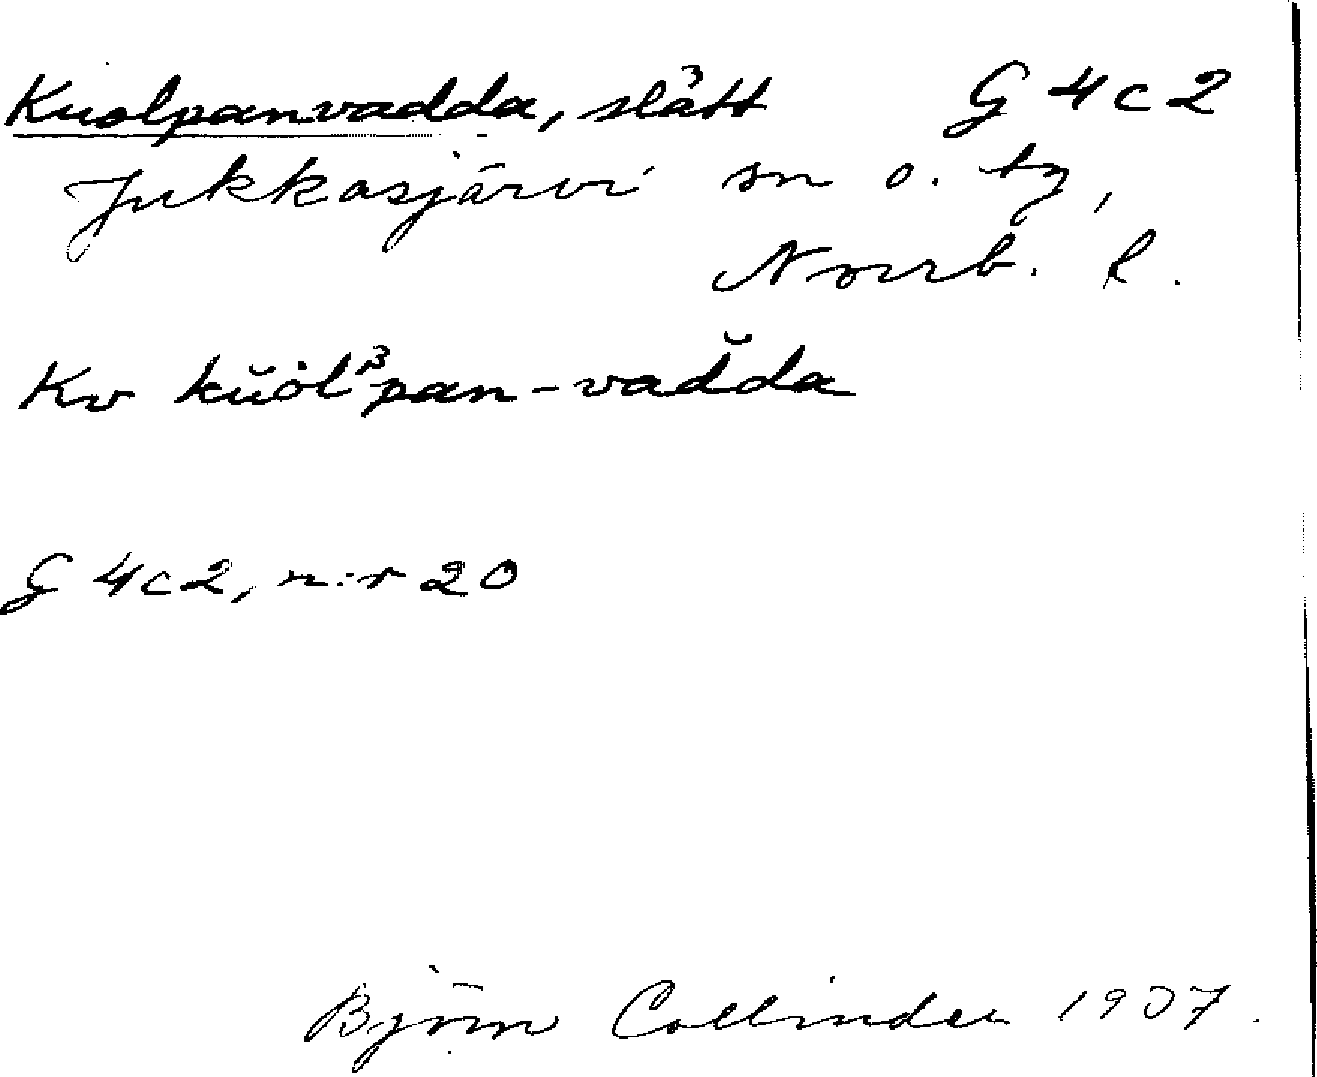 Kuolpanvadda, slått G 4 c 2
Jukkasjärvi sn o. tg,
Norrb. l.
Kv kŭòlᵝpan-vad̆da
G 4 c 2, n:r 20
Björn Collinder 1937.